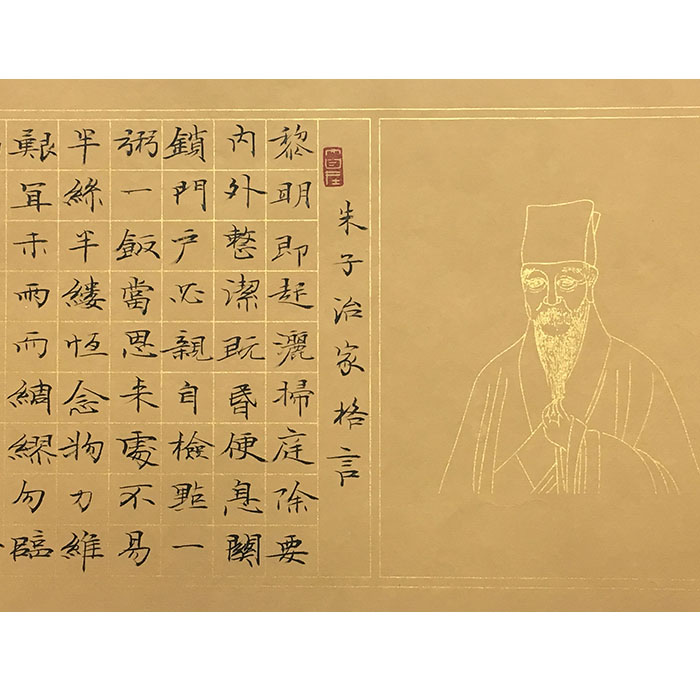 朱子治家格言
黎明即起灑掃庭除要
内外整潔既昬便息關
鎖門户必親自檢點一
粥一飯當思来處不易
半絲半縷恆念物力維
艱冝未雨而綢繆勿臨